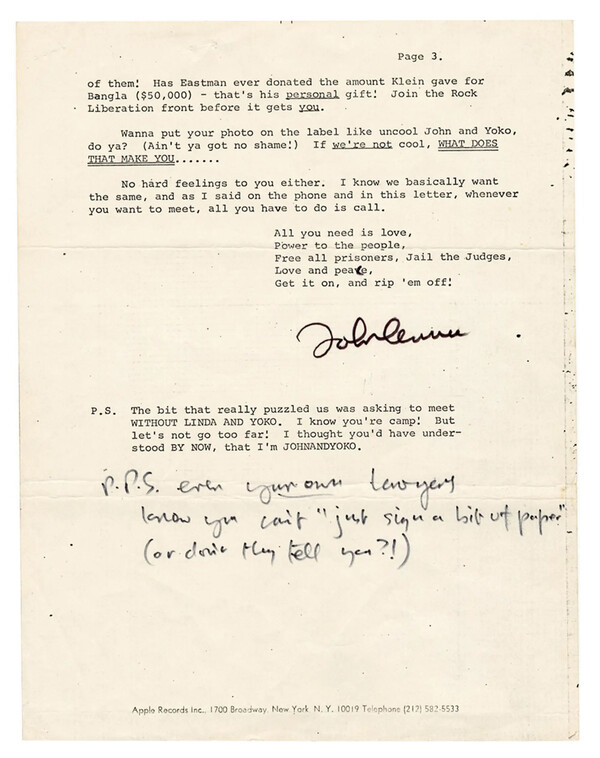 Page 3.
of them! Has Eastman ever donated the amount Klein gave for
Bangla ($50,000) - that's his personal gift! Join the Rock
Liberation front before it gets you.
Wanna put your photo on the label like uncool John and Yoko,
do ya? (Ain't ya got no shame!) If we're not cool, WHAT DOES
THAT MAKE YOU.......
No hard feelings to you either. I know we basically want
the same, and as I said on the phone and in this letter, whenever
you want to meet, all you have to do is call.
All you need is love,
Power to the people,
Free all prisoners, Jail the Judges,
Love and peace,
Get it on, and rip 'em off!
John Lennon
P.S. The bit that really puzzled us was asking to meet
WITHOUT LINDA AND YOKO. I know you're camp! But
let's not go too far! I thought you'd have under-
stood BY NOW, that I'm JOHNANDYOKO.
P.P.S. even your own lawyers
know you can't "just sign a bit of paper"
(or don't they tell you?!)
Apple Records Inc., 1700 Broadway, New York, N. Y. 10019 Telephone (212) 582-5533